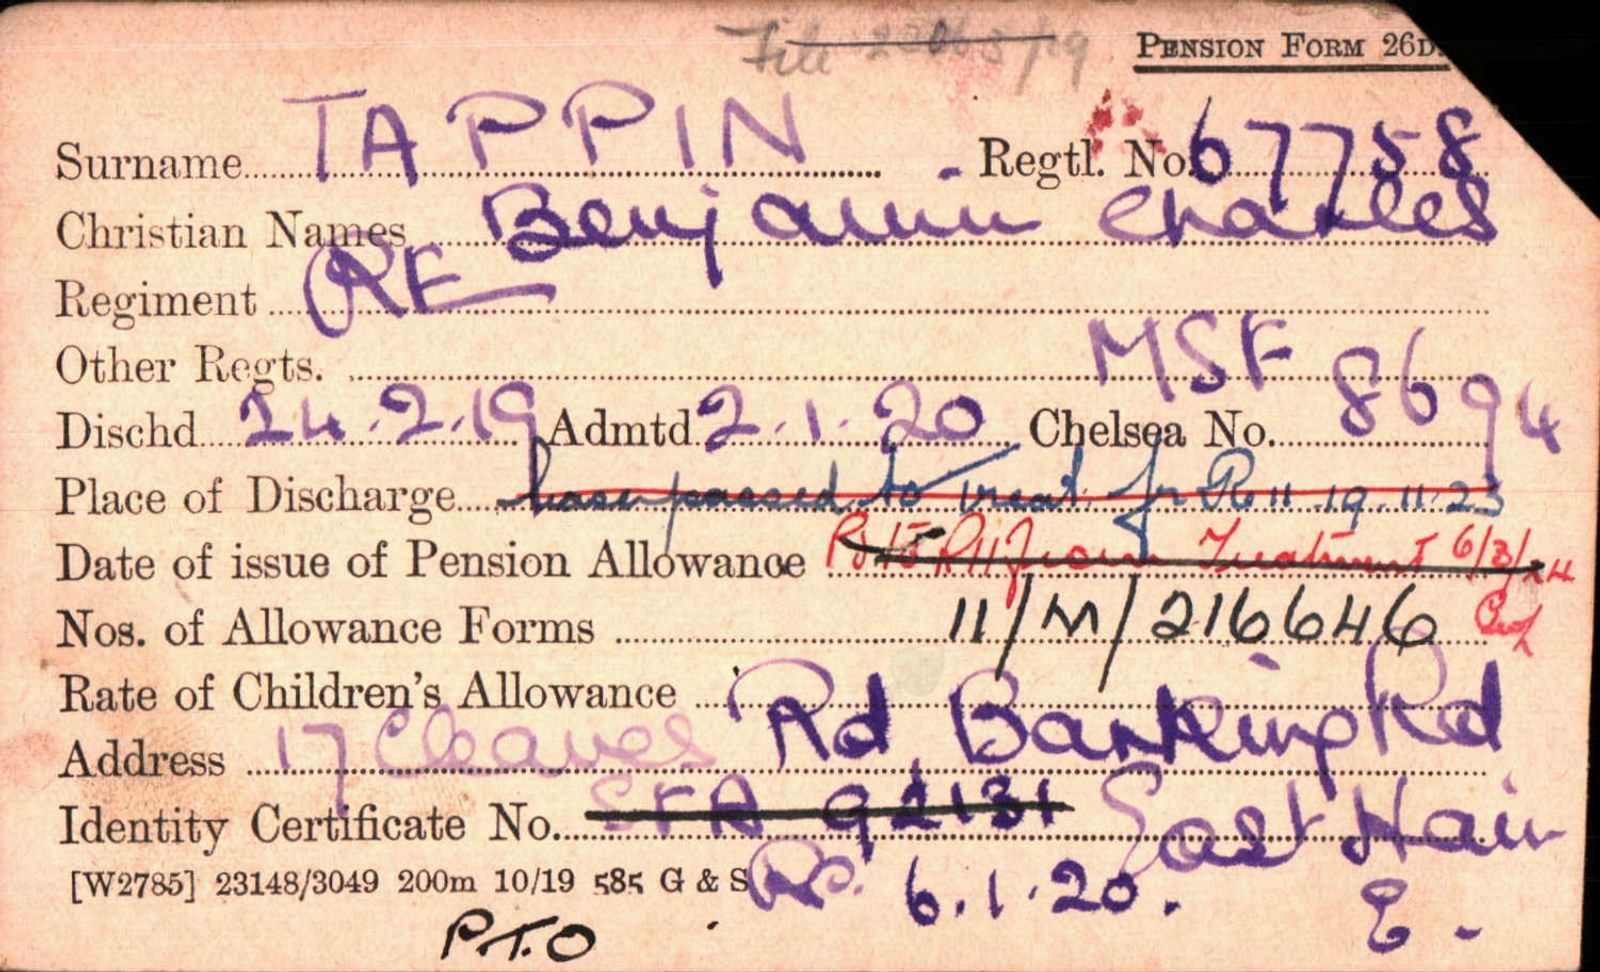 File 22063/19
PENSION FORM 26D.
Surname TAPPIN Regtl. No. 67758
Christian Names Benjamin Charles
Regiment RE
Other Regts. MSF
Dischd 24.2.19 Admtd 2.1.20 Chelsea No. 8694
Place of Discharge passed to treat. fr R 11 19.11.23
Date of issue of Pension Allowance to R11 from Treatment 6/3/24
Nos. of Allowance Forms 11/M/216646
Rate of Children's Allowance
Address 17 Cleaves Rd Barking Rd
Identity Certificate No. SFA 92131 East Ham
[W2785] 23148/3049 200m 10/19 585 G & S 6.1.20. E.
P.T.O